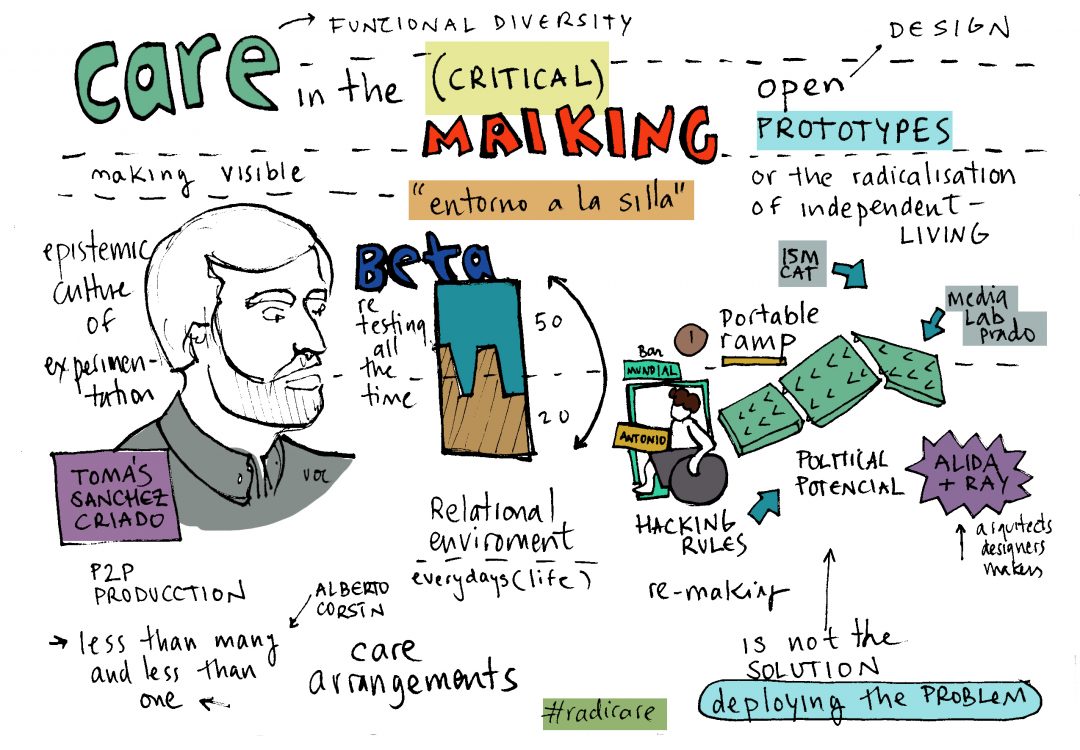 care
FUNCIONAL DIVERSITY
in the
(CRITICAL)
MAIKING
making visible
"entorno a la silla"
DESIGN
open
PROTOTYPES
or the radicalisation
of independent-
LIVING
epistemic
culture
of
experimen-
tation
TOMÁS
SANCHEZ
CRIADO
VOC
Beta
re
testing
all
the
time
50
20
15M
CAT
MEDIA
LAB
Prado
1
Portable
ramp
Bar
MUNDIAL
ANTONIO
HACKING
RULES
POLITICAL
POTENCIAL
ALIDA
+ RAY
arquitects
designers
makers
Relational
enviroment
everydays (life)
P2P
PRODUCCTION
ALBERTO
CORSÍN
less than many
and less than
one
care
arrangements
re-making
is not the
SOLUTION
deploying the PROBLEM
#radicare